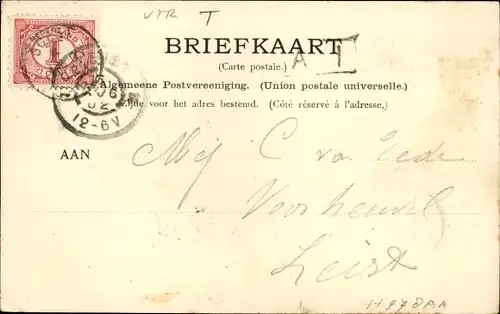 VTR T
BRIEFKAART
(Carte postale.)
A T
Algemeene Postvereeniging. (Union postale universelle.)
Zijde voor het adres bestemd. (Côté réservé à l'adresse.)
NEDERLAND
1
12-6V
AAN
Mej C van Eeden
Voorheuvel
Zeist
H978AA